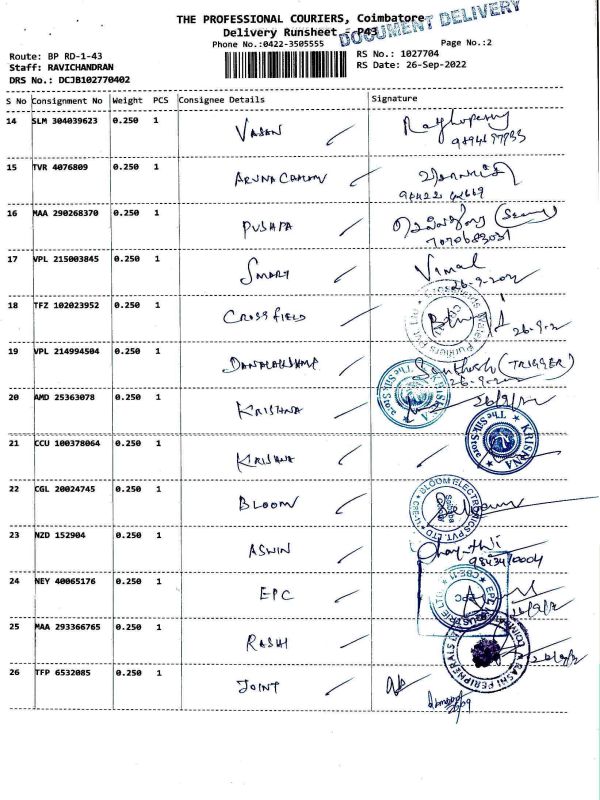 THE PROFESSIONAL COURIERS, Coimbatore
DOCUMENT DELIVERY
Delivery Runsheet - P43
Phone No.:0422-3505555 Page No.:2
Route: BP RD-1-43 RS No.: 1027704
Staff: RAVICHANDRAN RS Date: 26-Sep-2022
DRS No.: DCJB102770402
S No Consignment No Weight PCS Consignee Details Signature
14 SLM 304039623 0.250 1 VASAN
15 TVR 4076809 0.250 1 ARUNA
16 MAA 290268370 0.250 1 PUSHPA
7070683031
17 VPL 215003845 0.250 1 SMART Vimal
26-9-2022
18 TFZ 102023952 0.250 1 CROSSFIELD
26-9-2
19 VPL 214994504 0.250 1 Santhosh (TRIGGER)
26-9-2022
20 AMD 25363078 0.250 1 KRISHNA KRISHNA The Silk Store
21 CCU 100378064 0.250 1 KRISHNA KRISHNA The Silk Store
22 CGL 20024745 0.250 1 BLOOM BLOOM ELECTRONICS PVT. LTD
23 NZD 152904 0.250 1 ASWIN
9843470004
24 NEY 40065176 0.250 1 EPC EPC
25 MAA 293366765 0.250 1 RASHI RASHI PERIPHERALS
26 TFP 6532085 0.250 1 JOINT